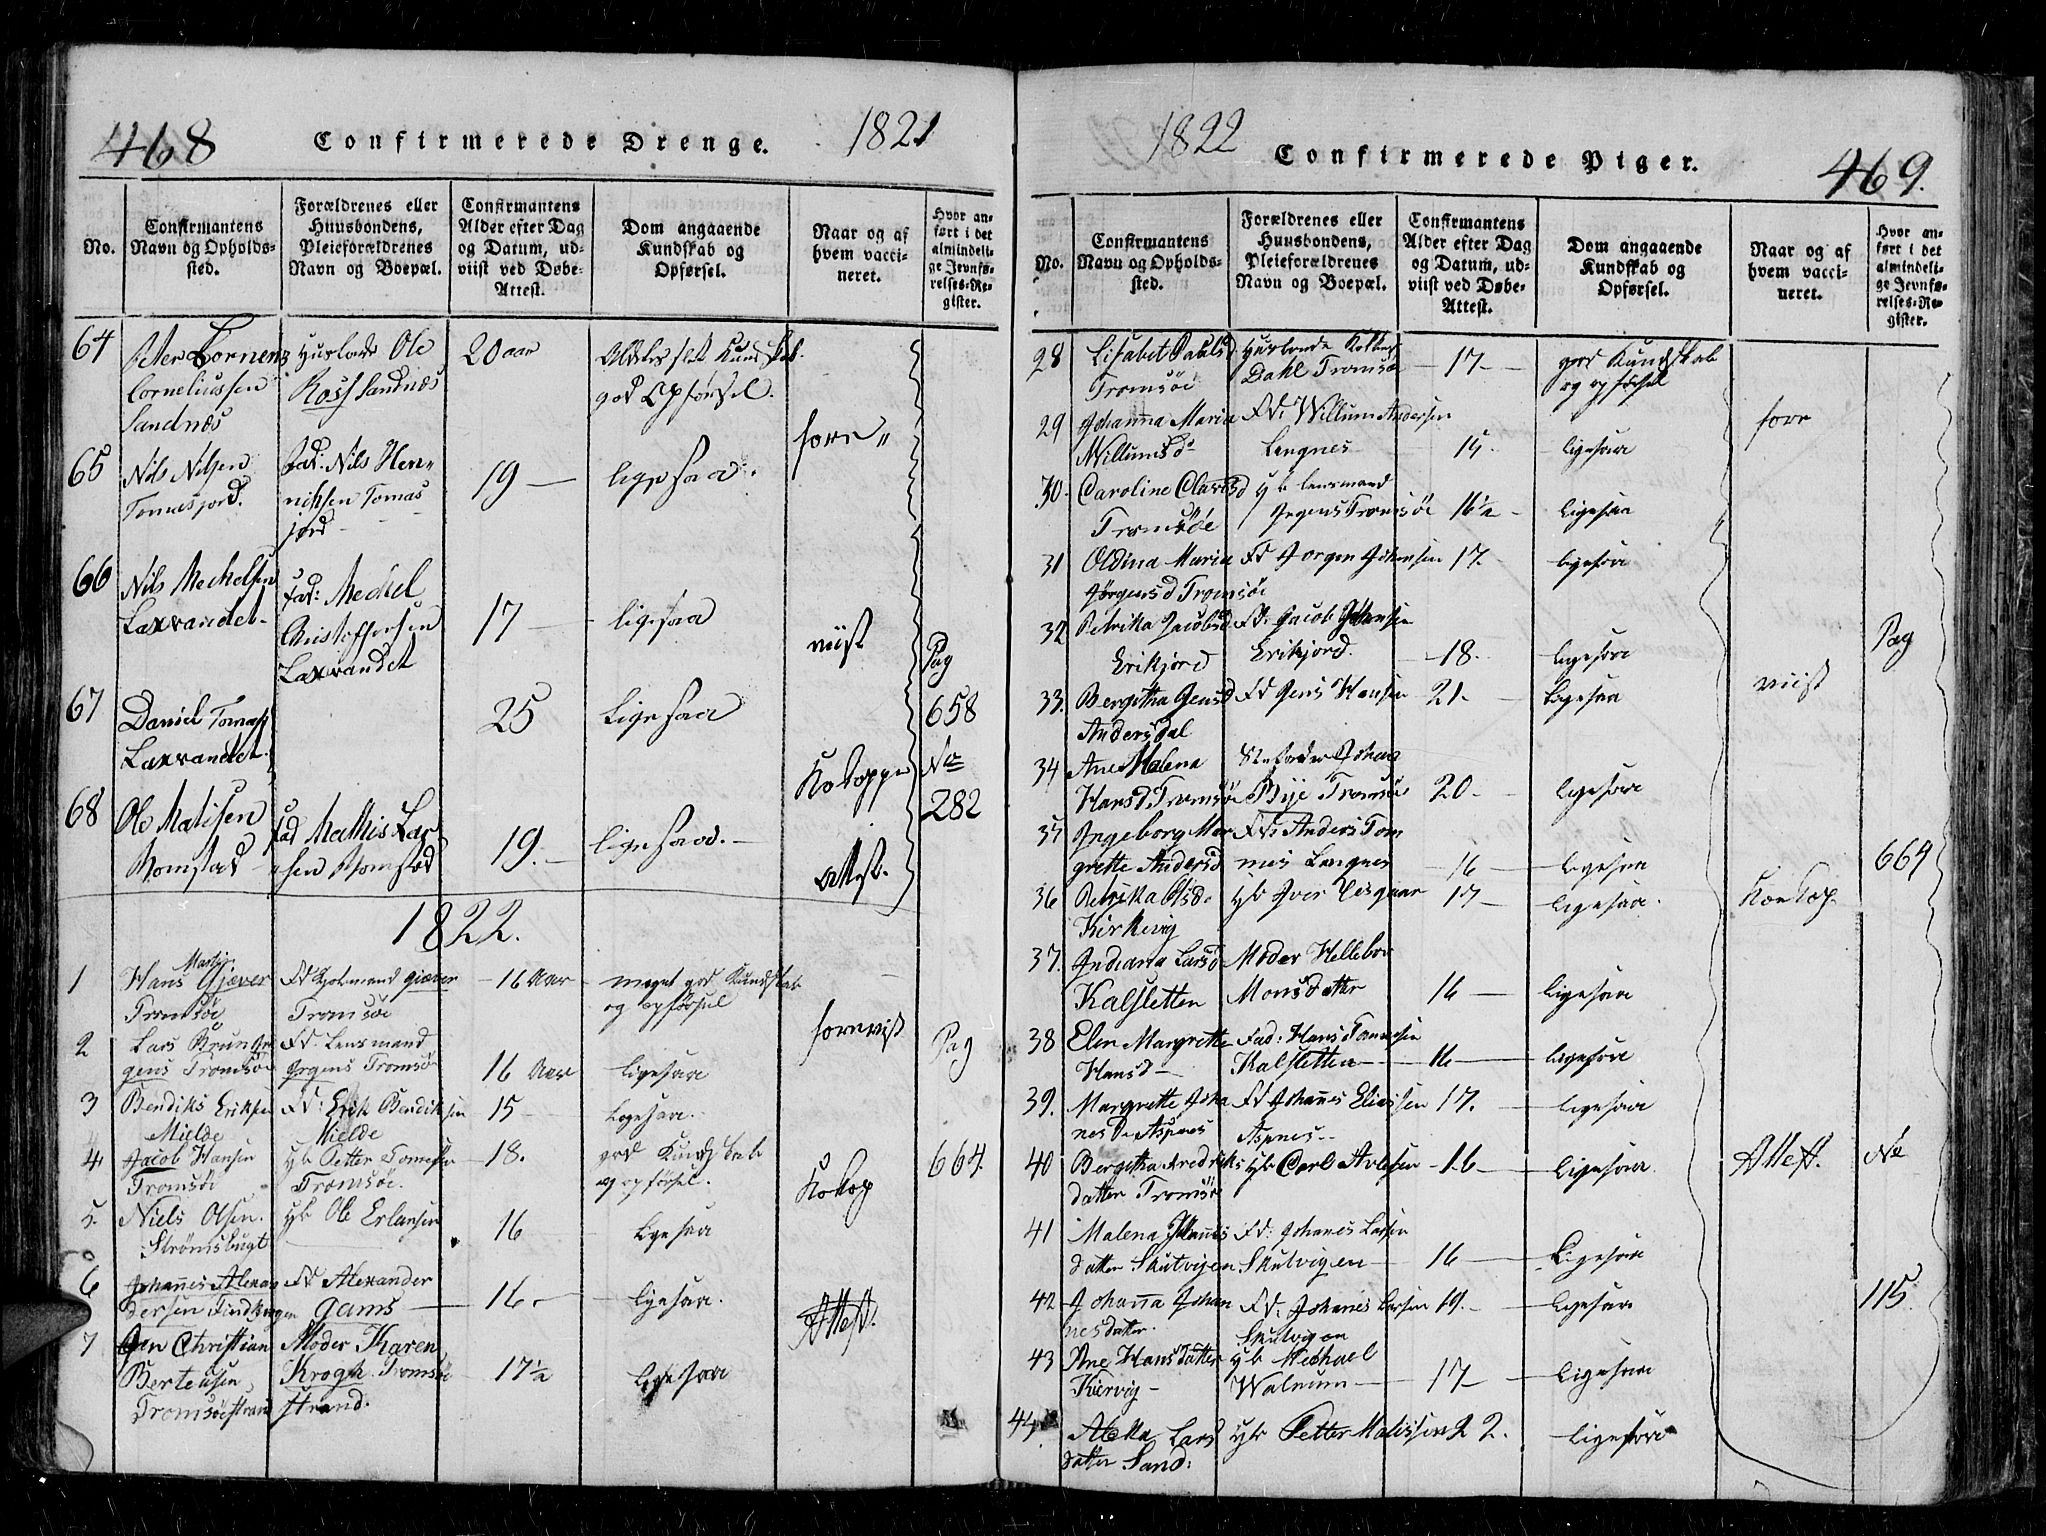 468
Confirmerede Drenge.
1821
No.
Confirmantens Navn og Opholds-sted.
Forældrenes eller Huusbondens, Pleieforældrenes Navn og Boepæl.
Confirmantens Alder efter Dag og Datum, ud-viist ved Døbe-Attest.
Dom angaaende Kundskab og Opførsel.
Naar og af hvem vacci-neret.
Hvor an-ført i det almindeli-ge Jevnfø-relses-Re-gister.
64
Cornelinssen
Sandnæs
Ole
Ross Sandnæs
20 aar
Kundskab
god Opførsel.
65
Nils Nilsen
Tomasjord.
Fad: Nils Hen„
richsen Tomas
jord
19
ligesaa.
forn„
66
Nils Mechelsen
Laxvandet
Fad: Mechel
Christoffersen
Laxvandet
17
ligesaa
viist
Pag
67
Daniel Tomass
Laxvandet.
25
Ligesaa
658
No
68
Ole Matisen
Romstad
Fad Mathis Lar
sen Romstad
19.
ligesaa.
Kokoppe
282
Attest.
1822.
1
Martin
Hans Gjæver
Tromsøe
Fd Kjøbmand Giæver
Tromsøe
16 Aar
meget god Kundskab
og opførsel
fornvist
2
Lars Brun Jør
gens Tromsøe
Fd Lensmand
Jrgens Tromsøe
16 Aar
ligesaa
Pag
3
Bendiks Eriksen
Mielde
Fd: Erik Bendiksen
Mielde
15
Ligesaa.
4
Jacob Hansen
Tromsøe
Hb Petter Tomesen
Tromsøe.
18.
god Kundskab
og opførsel.
Kokop
664.
5.
Niels Olsen.
Strømsbugt
Hb Ole Erlansen
16
Ligesaa
6
Johanes Alexan
dersen Findkrogen
Fd Alexander
Gams
16.
ligesaa.
Attest.
7
Jen Christian
Berteusen
Tromsøestrand
Moder Karen
Krogh Tromsøe
strand.
17½
ligesaa
1822
Confirmerede Piger.
469.
No.
Confirmantens Navn og Opholds-sted.
Forældrenes eller Huusbondens, Pleieforældrenes Navn og Boepæl.
Confirmantens Alder efter Dag og Datum, ud-viist ved Døbe-Attest.
Dom angaaende Kundskab og Opførsel.
Naar og af hvem vacci-neret.
Hvor an-ført i det almindeli-ge Jevnfø-relses-Re-gister.
28
Lisabet Pauls d
Tromsøe
Dahl Tromsøe
17
god Kundskab
og opførsel
29
Johanna Maria
Willums d
Fd: Willum Andersen
Langnes
15.
ligesaa
forn
30.
Caroline Clavis d
Tromsøe
Hb Lensmand
Jrgens Tromsøe
16½
Ligesaa
31
Oldina Maria
Jørgens d Tromsøe
Fd Jørgen Johansen
17.
ligesaa
32
Petrika Jacobs d
Erikjord
Fd: Jacob Johansen
Erikjord.
18.
ligesaa
Pag
33.
Bergitha Jens d
Andersdal
Fd Jens Hansen
21.
Ligesaa
viist
34
Ane Malena
Hans d. Tromsøe
Stefader Johan
Bye Tromsøe
20.
ligesaa
35
Ingeborg Mar
grette Anders d
Fd: Anders Tom
mes Langnes
16
ligesaa
664
36
Petrika Ols d.
Kirkevig
Hb Iver Elvegaar
17
Ligesaa.
Koekop.
37.
Indiana Lars d
Kalsletten
Moder Hellebor
Monsdatter
16
ligesaa
38
Elen Margrette
Hans d
Fad: Hans Tommesen
Kalsletten
16
ligesaa
39.
Margrette Joha
nes d Aspnes
Fd Johannes Eliassen
Aspnes.
17.
ligesaa
40
Bergitha Fredriks
datter Tromsøe
Hb Carl Avlesen
16
ligesaa.
Attest.
No
41
Malena Johannes
datter Skulvigen
Fd: Johanes Larsen
Skulvigen
16
Ligesaa
42
Johanna Johan
nesdatter.
Fd: Johanes Larsen
Skulvigen
19.
ligesaa
115
43
Ane Hansdatter
Kiervig
Hb Mechael
Walnum
17
ligesaa
44.
Aletta Lars
datter Sand:
Hb Petter Matissen
22.
ligesaa